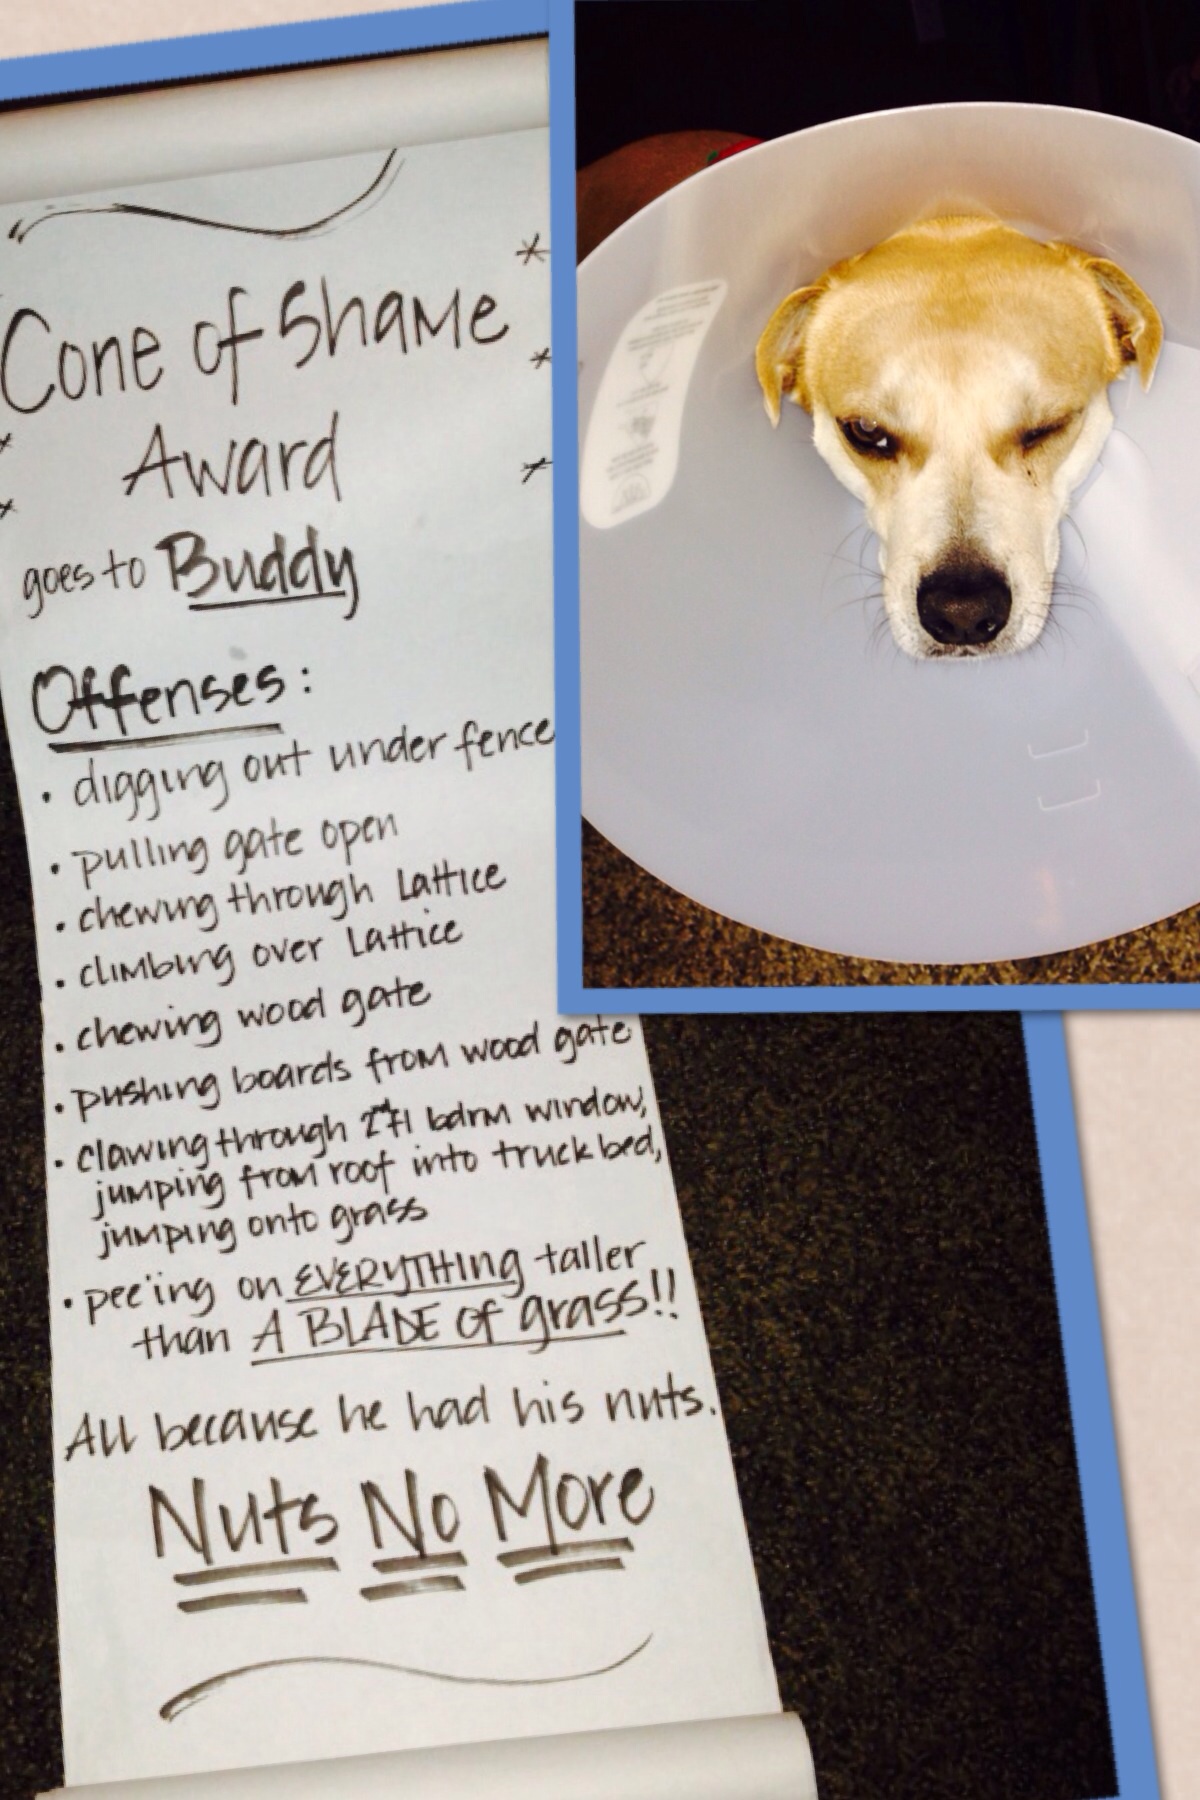 Cone of Shame
Award
goes to Buddy
Offenses:
• digging out under fence
• pulling gate open
• chewing through Lattice
• climbing over Lattice
• chewing wood gate
• pushing boards from wood gate
• clawing through 2nd fl bdrm window,
jumping from roof into truck bed,
jumping onto grass
• pee'ing on EVERYTHING taller
than A BLADE of grass!!
All because he had his nuts.
Nuts No More